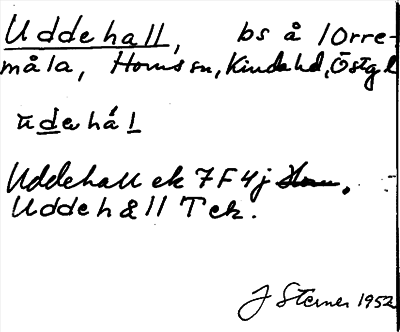 Uddehall, bs å Torre-
måla, Horns sn, Kinda hd, Östgl
ŭdehál
Uddehall ek 7F4j
Uddehäll Tek.
J Sterner 1952